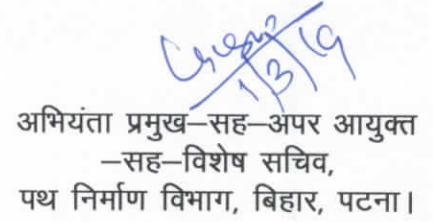 1/3/19
अभियंता प्रमुख–सह–अपर आयुक्त
–सह–विशेष सचिव,
पथ निर्माण विभाग, बिहार, पटना।